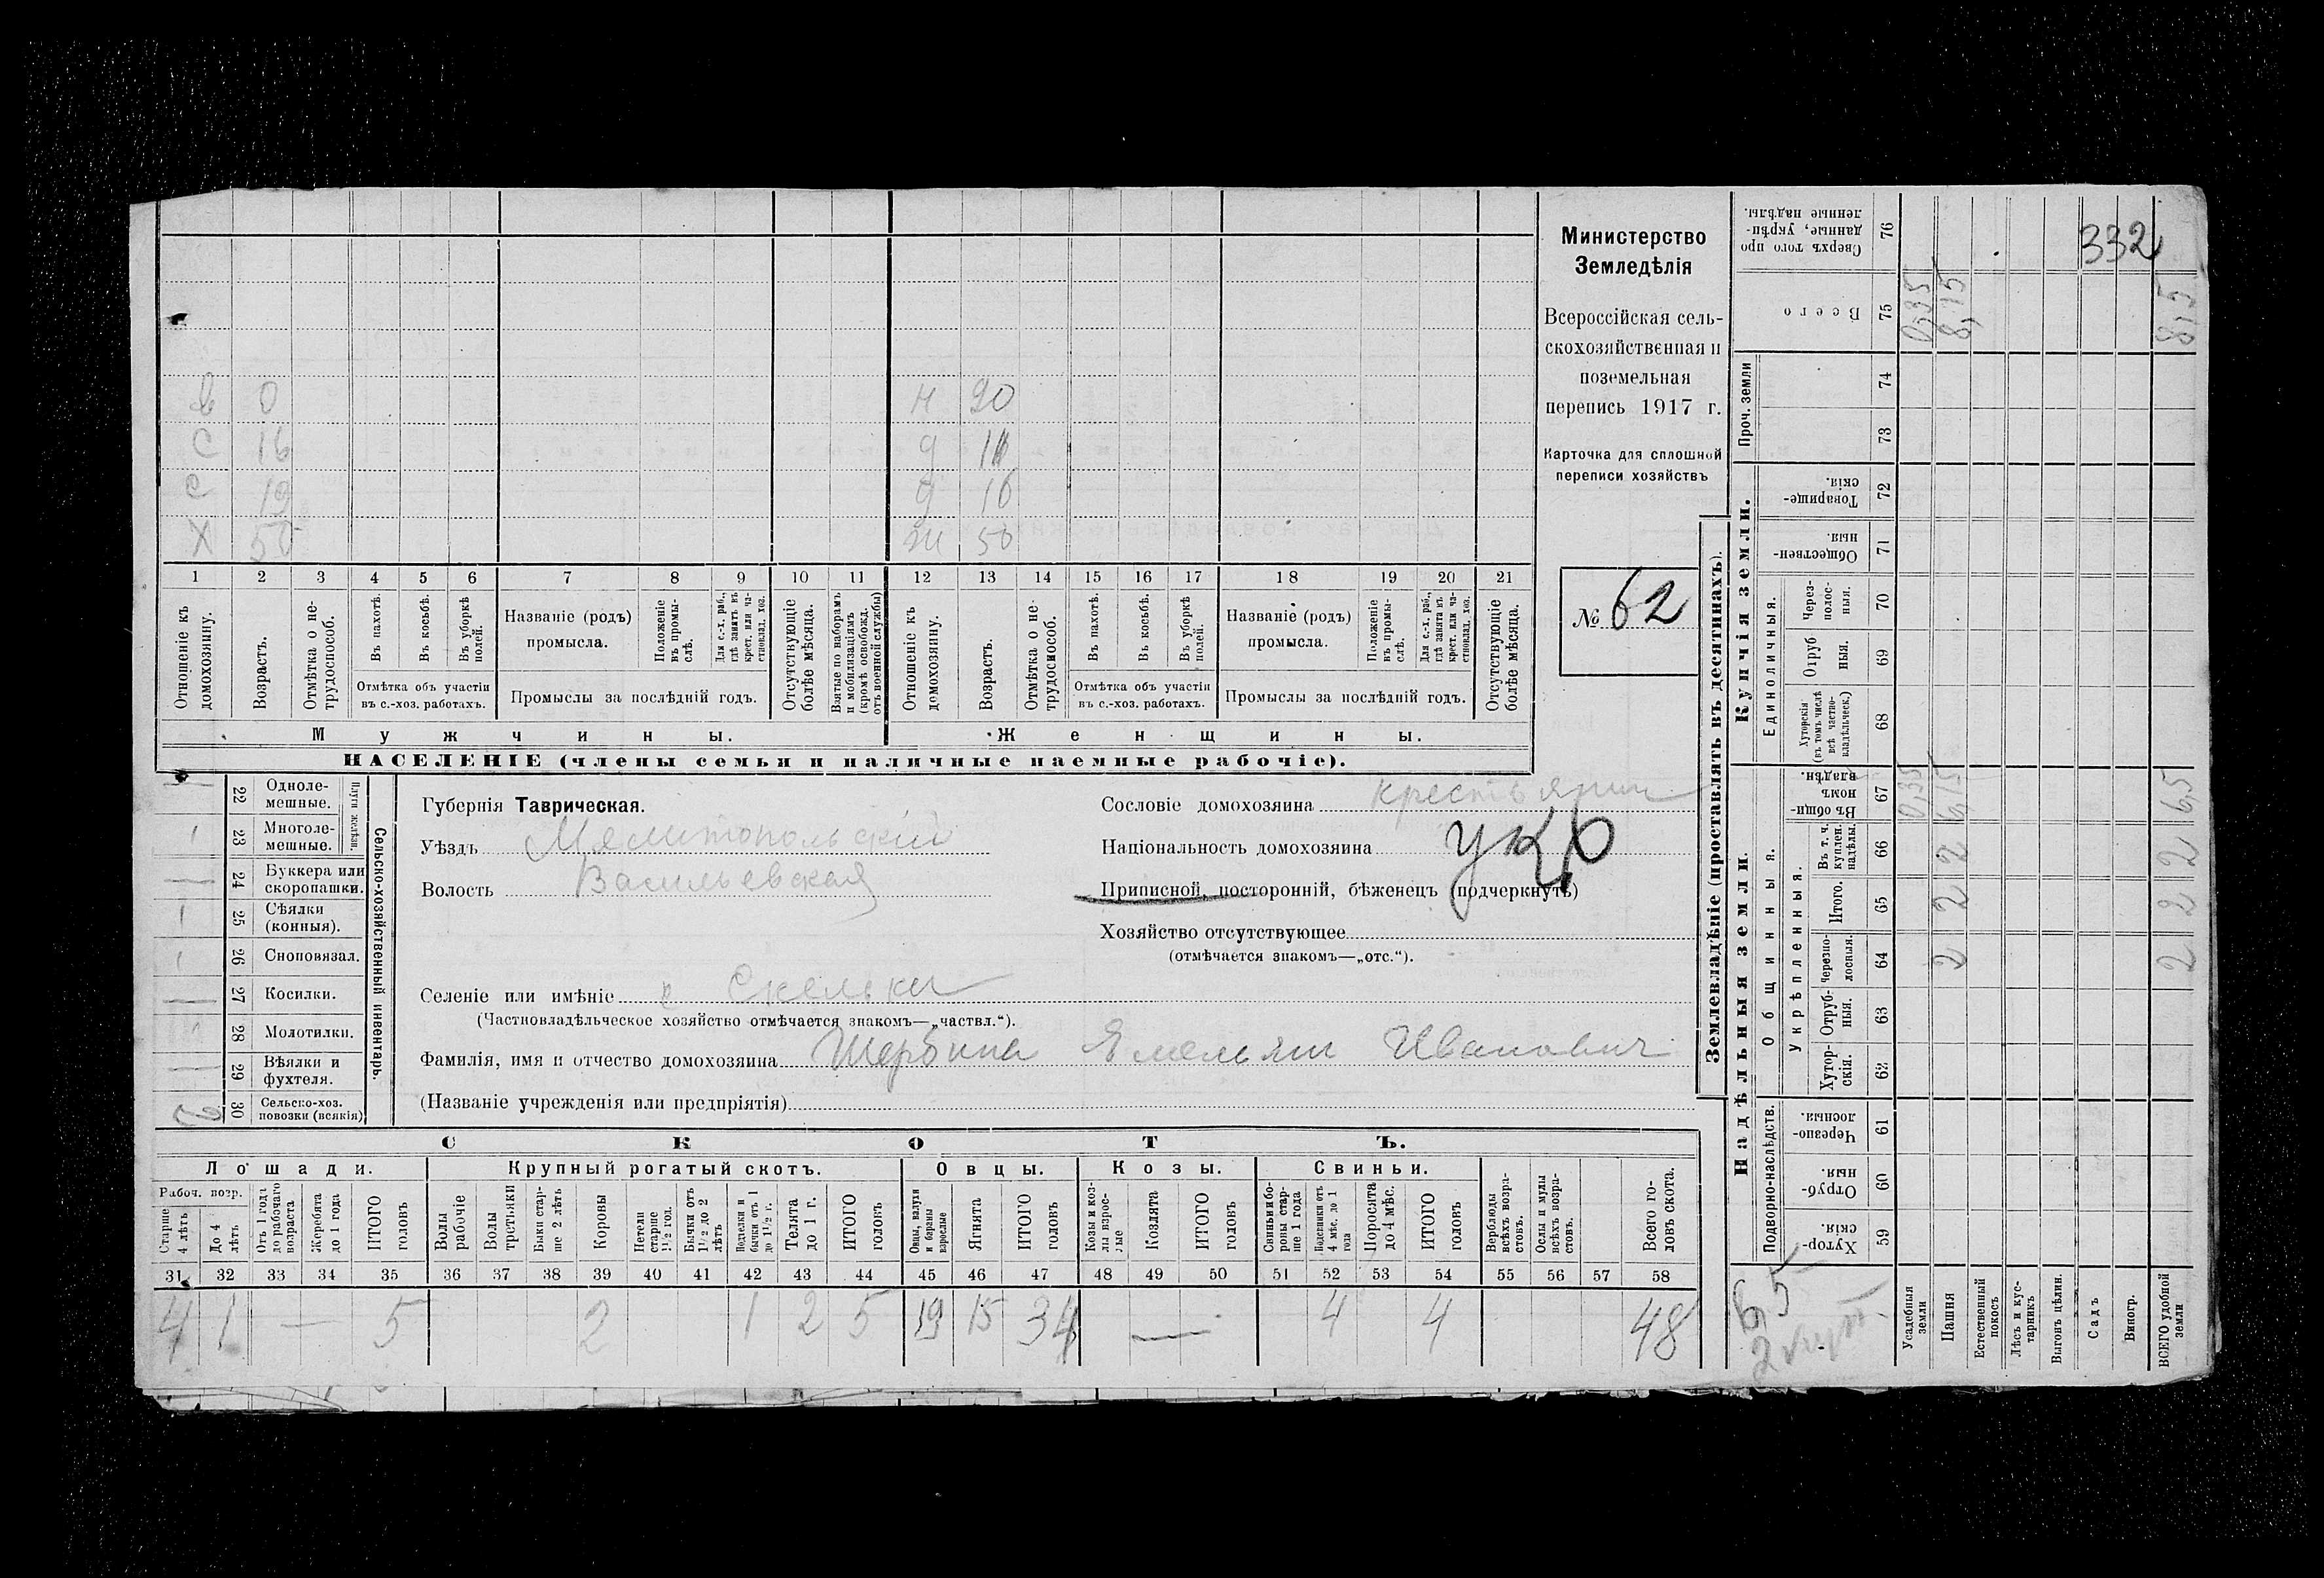 Министерство
Земледѣлія
Всероссійская сель-
скохозяйственная и
поземельная
перепись 1917 г.
Карточка для сплошной
переписи хозяйствъ
№ 62
332
в 0
с 16
с 19
х 50
н 20
д 16
ж 50
1 2 3 4 5 6 7 8 9 10 11 12 13 14 15 16 17 18 19 20 21
Отношеніе къ домохозяину.
Возрастъ.
Отмѣтка о не-трудоспособ.
Въ пахотѣ.
Въ косьбѣ.
Въ уборкѣ полей.
Отмѣтка объ участіи
въ с.-хоз. работахъ.
Названіе (родъ)
промысла.
Положеніе въ промы-слѣ.
Для с.-х. раб., гдѣ занятъ въ крест. или ча-стновлад. хоз.
Промыслы за послѣдній годъ.
Отсутствующіе болѣе мѣсяца.
Взятые по наборамъ и мобилизаціямъ (кромѣ освобожд. отъ военной службы)
Отношеніе къ домохозяину.
Возрастъ.
Отмѣтка о не-трудоспособ.
Въ пахотѣ.
Въ косьбѣ.
Въ уборкѣ полей.
Отмѣтка объ участіи
въ с.-хоз. работахъ.
Названіе (родъ)
промысла.
Положеніе въ промы-слѣ.
Для с.-х. раб., гдѣ занята въ крест. или ча-стновлад. хоз.
Промыслы за послѣдній годъ.
Отсутствующіе болѣе мѣсяца.
Мужчины.
Женщины.
НАСЕЛЕНІЕ (члены семьи и наличные наемные рабочіе).
Сельско-хозяйственный инвентарь.
Плуги желѣзн.
— 22 Одноле-мешные.
1 23 Многоле-мешные.
— 24 Буккера или скоропашки.
1 25 Сѣялки (конныя).
1 26 Сноповязал.
— 27 Косилки.
1 28 Молотилки.
— 29 Вѣялки и фухтеля.
30 Сельско-хоз. повозки (всякія)
Губернія Таврическая.
Уѣздъ Мелитопольскій
Волость Васильевская
Сословіе домохозяина крестьянин
Національность домохозяина укр
Приписной, посторонній, бѣженецъ (подчеркнуть)
Хозяйство отсутствующее
(отмѣчается знакомъ—„отс.“).
Селеніе или имѣніе с Скельки
(Частновладѣльческое хозяйство отмѣчается знакомъ—„частвл.“).
Фамилія, имя и отчество домохозяина Щербина Емельян Иванович
(Названіе учрежденія или предпріятія)
СКОТЪ.
Лошади.
Крупный рогатый скотъ.
Овцы.
Козы.
Свиньи.
Рабоч. возр.
Старше 4 лѣтъ
До 4 лѣтъ
Отъ 1 года до рабочаго возраста
Жеребята до 1 года
ИТОГО головъ
Волы рабочіе
Волы третьяки
Быки стар-ше 2 лѣтъ
Коровы
Нетели старше 1½ год.
Бычки отъ 1½ до 2 лѣтъ
Подтелки и бычки отъ 1 до 1½ г.
Телята до 1 г.
ИТОГО головъ
Овцы, валухи и бараны взрослые
Ягнята
ИТОГО головъ
Козы и коз-лы взрос-лые
Козлята
ИТОГО головъ
Свиньи и бо-ровы стар-ше 1 года
Подсвинки отъ 4 мѣс. до 1 года
Поросята до 4 мѣс.
ИТОГО головъ
Верблюды всѣхъ возра-стовъ.
Ослы и мулы всѣхъ возра-стовъ.
Всего го-ловъ скота.
31 32 33 34 35 36 37 38 39 40 41 42 43 44 45 46 47 48 49 50 51 52 53 54 55 56 57 58
4 1 — 5 2 1 2 5 19 15 34 — 4 4 48
Землевладѣніе (проставлять въ десятинахъ).
Надѣльныя земли.
Купчія земли.
Проч. земли
Подворно-наслѣдств.
Общинныя.
Укрѣпленныя.
Единоличныя.
Хутор-скія. 59
Отруб-ныя. 60
Черезпо-лосныя. 61
Хутор-скія. 62
Отруб-ныя. 63
Черезпо-лосныя. 64
Итого. 65
Въ т. ч. куплен. надѣлы. 66
Въ общин-номъ владѣн. 67
Хуторскія (въ томъ числѣ всѣ частно-владѣльческ.) 68
Отруб ныя. 69
Через-полос-ныя. 70
Обществен-ныя. 71
Товарище-скія. 72
73
74
Всего 75
Сверхъ того про данные, укрѣп-ленные надѣлы. 76
Усадебныя земли 0,35 0,35
Пашня 2 2 2 6,15 8,15
Естественный покосъ
Лѣсъ и кус-тарникъ
Выгонъ цѣлин.
Садъ
Виногр.
ВСЕГО удобной земли 2 2 2 6,5 8,5
6,5